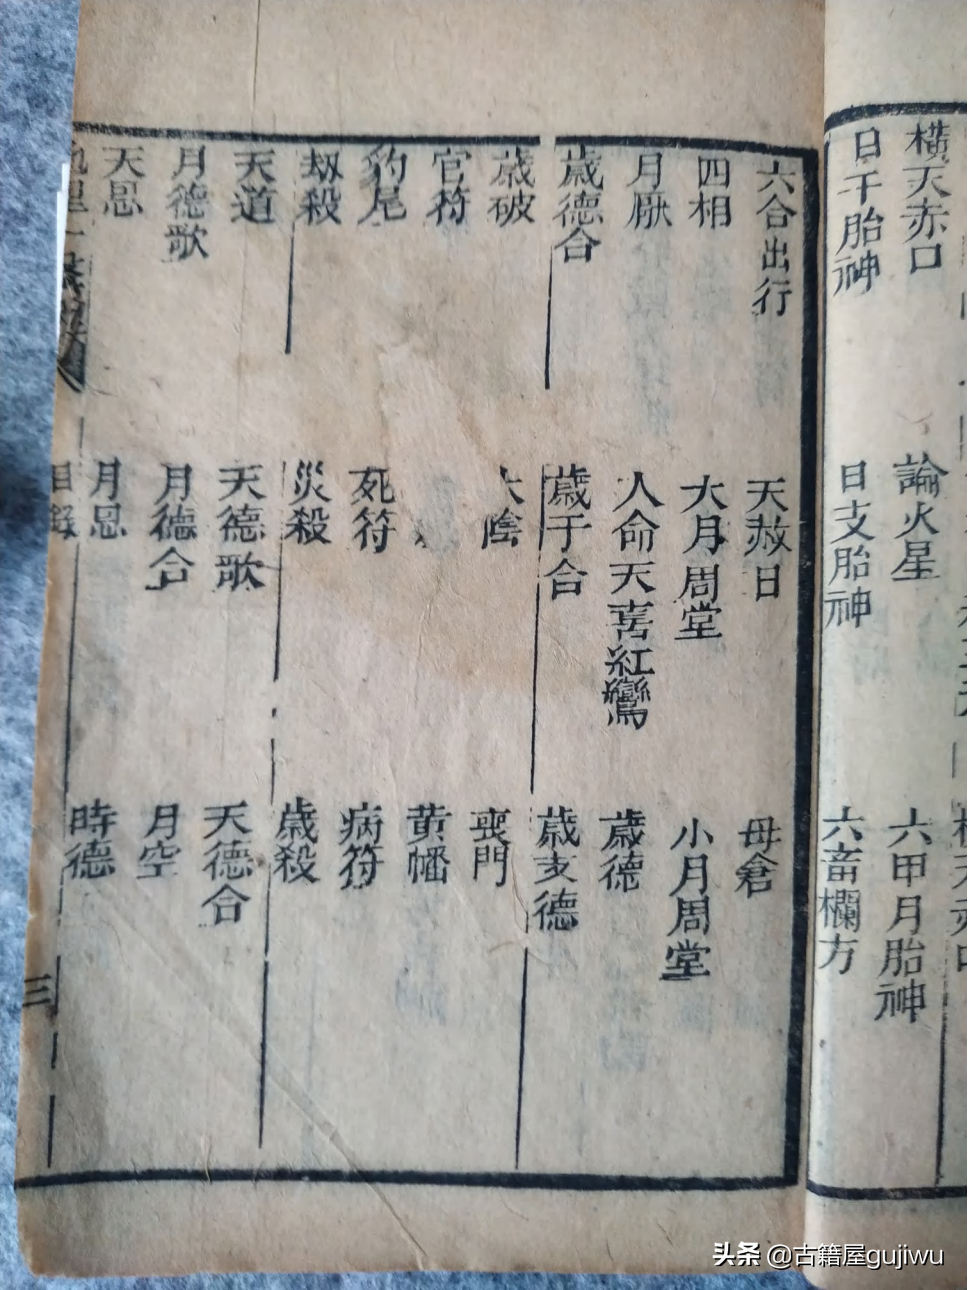 橫天赤口 論火星 六甲月胎神
日干胎神 日支胎神 六畜欄方
六合出行 天赦日 母倉
四相 大月周堂 小月周堂
月厭 人命天喜紅鸞 歲德
歲德合 歲干合 歲支德
歲破 陰 喪門
官符 黃幡
豹尾 死符 病符
劫殺 災殺 歲殺
天道 天德歌 天德合
月德歌 月德合 月空
天恩 月恩 時德
目錄 三
头条 @古籍屋gujiwu